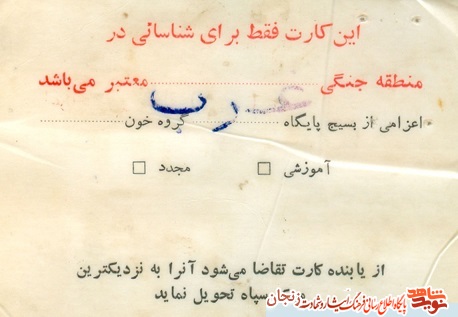 این کارت فقط برای شناسائی در
منطقه جنگی غرب معتبر می‌باشد
اعزامی از بسیج پایگاه گروه خون
آموزشی □ مجدد □
از یابنده کارت تقاضا می‌شود آنرا به نزدیکترین
سپاه تحویل نماید
نوید شاهد پایگاه اطلاع رسانی فرهنگ ایثار و شهادت زنجان